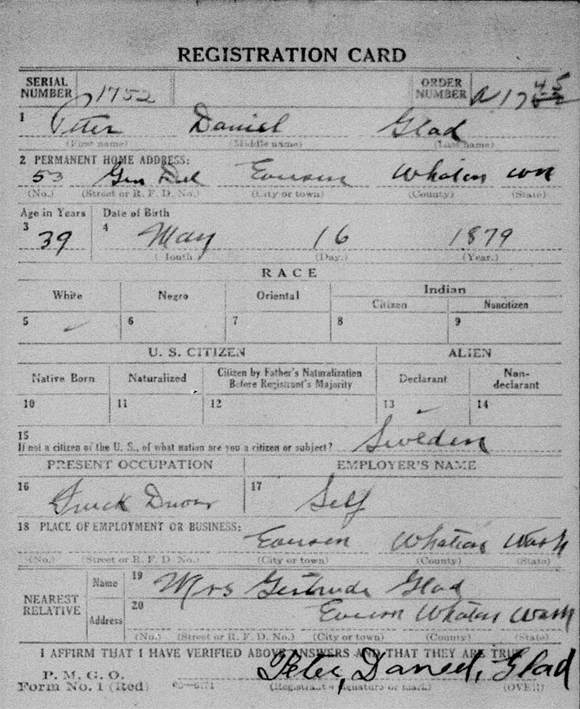 REGISTRATION CARD
SERIAL NUMBER 1752 ORDER NUMBER A 17
1 Peter Daniel Glad
(First name) (Middle name) (Last name)
2 PERMANENT HOME ADDRESS:
53 Gen Del Everson Whatcom Wn
(No.) (Street or R. F. D. No.) (City or town) (County) (State)
Age in Years Date of Birth
3 39 4 May 16 1879
(Month.) (Day.) (Year.)
RACE
White Negro Oriental Indian
Citizen Noncitizen
5 ✓ 6 7 8 9
U. S. CITIZEN ALIEN
Native Born Naturalized Citizen by Father's Naturalization Before Registrant's Majority Declarant Non-declarant
10 11 12 13 14
15
If not a citizen of the U. S., of what nation are you a citizen or subject? Sweden
PRESENT OCCUPATION EMPLOYER'S NAME
16 Truck Driver 17 Self
18 PLACE OF EMPLOYMENT OR BUSINESS:
Everson Whatcom Wash
(No.) (Street or R. F. D. No.) (City or town) (County) (State)
NEAREST RELATIVE Name 19 Mrs Gertrude Glad
Address 20 Everson Whatcom Wash
(No.) (Street or R. F. D. No.) (City or town) (County) (State)
I AFFIRM THAT I HAVE VERIFIED ABOVE ANSWERS AND THAT THEY ARE TRUE
P. M. G. O.
Form No. 1 (Red) Peter, Daniel, Glad
(Registrant's signature or mark) (OVER)